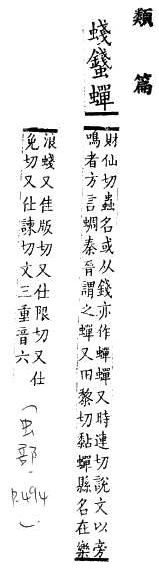 類篇
蟬
財仙切蟲名或从錢亦作蟬蟬又時連切說文以旁
鳴者方言蜩秦晉謂之蟬又田黎切黏蟬縣名在樂
浪又隹版切又仕限切又仕
免切又仕諫切文三重音六
(虫部,
P.494)